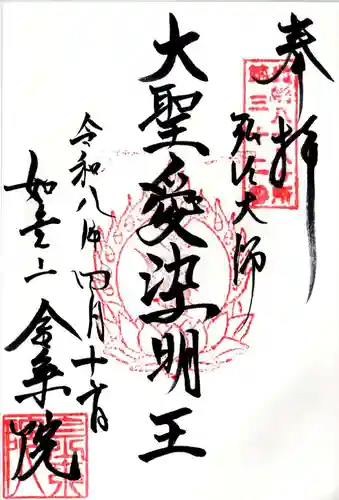 奉拝
弘法大師
大聖愛染明王
令和八年四月十六日
如意山
金乗院